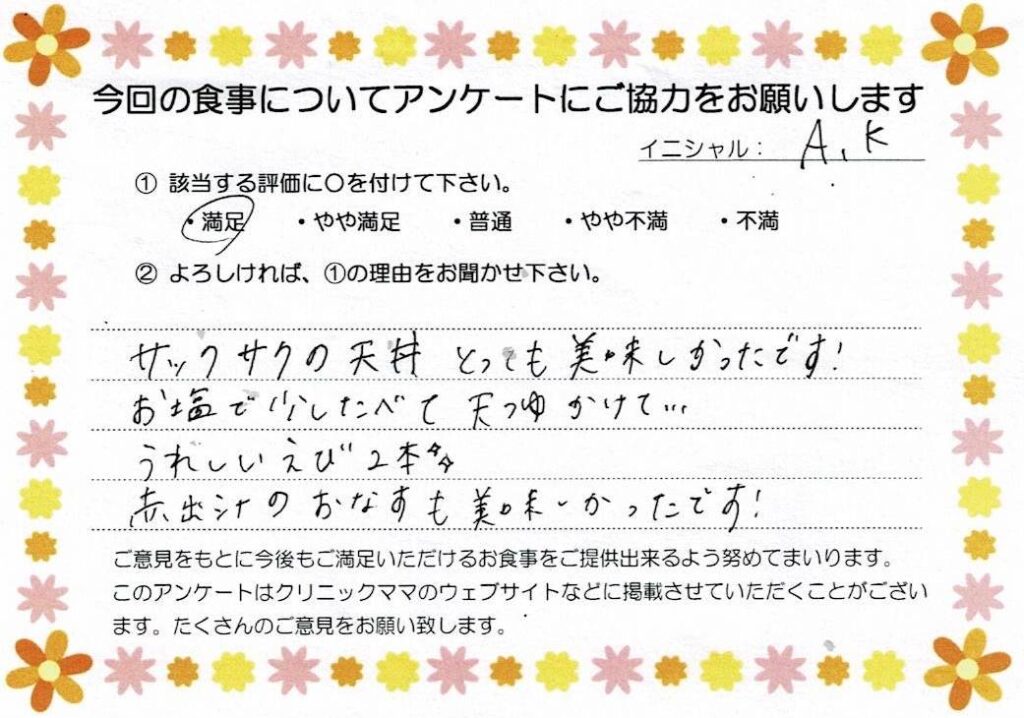 今回の食事についてアンケートにご協力をお願いします
イニシャル： A、K
① 該当する評価に〇を付けて下さい。
・満足 ・やや満足 ・普通 ・やや不満 ・不満
② よろしければ、①の理由をお聞かせ下さい。
サックサクの天丼 とっても美味しかったです！
お塩で少したべて 天つゆかけて…
うれしいえび2本
赤出汁のおなすも美味しかったです！
ご意見をもとに今後もご満足いただけるお食事をご提供出来るよう努めてまいります。
このアンケートはクリニックママのウェブサイトなどに掲載させていただくことがござい
ます。たくさんのご意見をお願い致します。